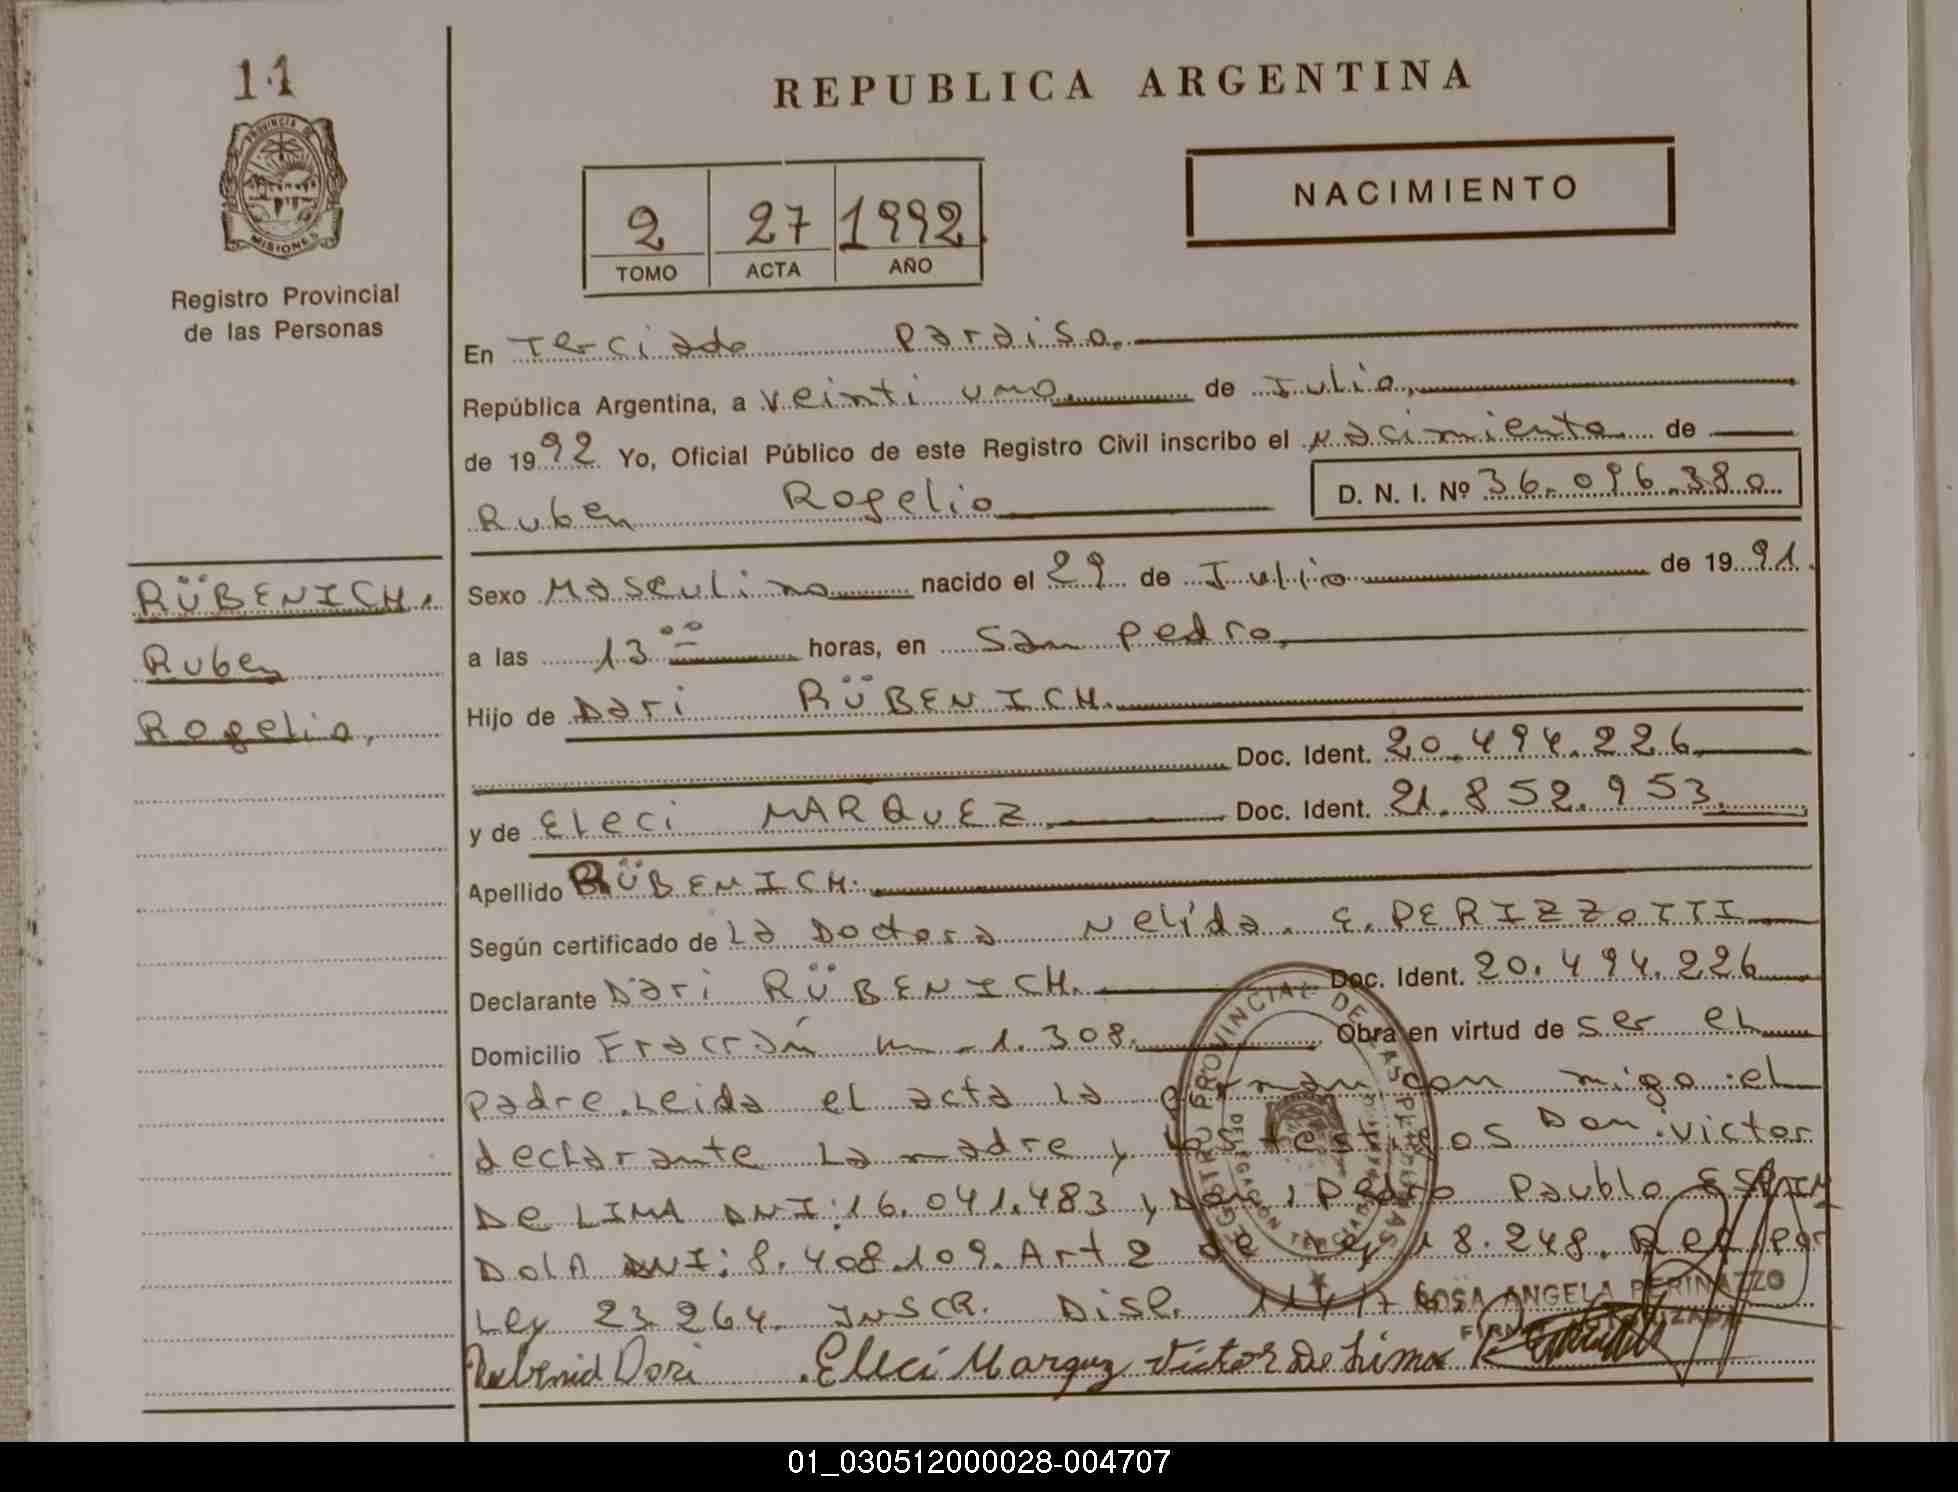 11
REPUBLICA ARGENTINA
PROVINCIA DE
MISIONES
Registro Provincial
de las Personas
2 27 1992
TOMO ACTA AÑO
NACIMIENTO
En Terciado Paraiso.
República Argentina, a veinti uno de Julio,
de 1992 Yo, Oficial Público de este Registro Civil inscribo el nacimiento de
Ruben Rogelio
D. N. I. Nº 36.096.380
RÜBENICH.
Ruben
Rogelio,
Sexo Masculino nacido el 29 de Julio de 1991.
a las 13 00 horas, en San Pedro,
Hijo de Dari RÜBENICH.
Doc. Ident. 20.494.226
y de Eleci MARQUEZ. Doc. Ident. 21.852.953.
Apellido RÜBENICH.
Según certificado de La Doctora Nelída. E. PERIZZOTTI
Declarante Dari RÜBENICH. Doc. Ident. 20.494.226
Domicilio Fracrán Km - 1.308. Obra en virtud de ser el
padre. Leida el acta la firman con migo el
declarante La madre y los testigos Don. victor
DE LIMA DNI: 16.041.483 y Don, Pedro Paublo ESPIN
DolA DNI: 8.408.109. Art 2 de Ley 18.248. Rec por
Ley 23.264. INSCR. Disp.
Rubenid Dari Elleci Marquz Victor De Lima
REGISTRO PROVINCIAL DE LAS PERSONAS
ROSA ANGELA PERINAZZO
FIRMA AUTORIZADA
01_030512000028-004707